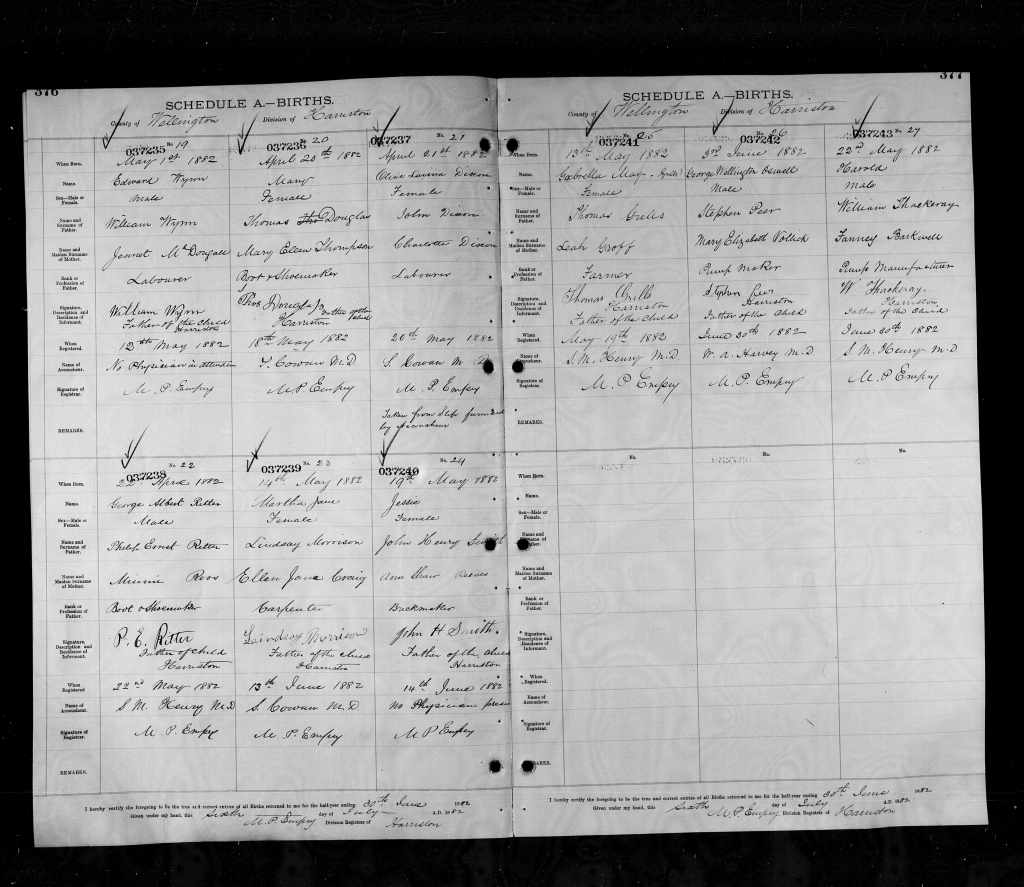 376
SCHEDULE A.—BIRTHS.
County of Wellington Division of Harriston
037235 No. 19 037236 No. 20 037237 No. 21
When Born. May 1st 1882 April 20th 1882 April 21st 1882
Name. Edward Wynn Mary Olive Lavina Dixon
Sex—Male or Female. Male Female Female
Name and Surname of Father. William Wynn Thomas Douglas John Dixon
Name and Maiden Surname of Mother. Jennet McDougall Mary Ellen Thompson Charlotte Dixon
Rank or Profession of Father. Labourer Boot & Shoemaker Labourer
Signature, Description and Residence of Informant. William Wynn Father of the Child Harriston Thos Douglas Father of the Child Harriston
When Registered. 12th May 1882 18th May 1882 20th May 1882
Name of Accoucheur. No Physician in attendance S. Cowan M.D S. Cowan M D
Signature of Registrar. M. P. Empey M P. Empey M. P. Empey
REMARKS. Taken from slip furnished by Accoucheur
037238 No. 22 037239 No. 23 037240 No. 24
When Born. 22nd April 1882 14th May 1882 19th May 1882
Name. George Albert Ritter Martha Jane Jessie
Sex—Male or Female. Male Female Female
Name and Surname of Father. Philip Ernst Ritter Lindsay Morrison John Henry Smith
Name and Maiden Surname of Mother. Minnie Roos Ellen Jane Craig Ann Shaw Reeves
Rank or Profession of Father. Boot & Shoemaker Carpenter
Signature, Description and Residence of Informant. P. E. Ritter Father of Child Harriston Lindsay Morrison Father of the Child Harriston John H Smith. Father of the Child Harriston
When Registered 22nd May 1882 13th June 1882 14th June 1882
Name of Accoucheur. S M. Henry M.D S. Cowan M.D No Physician present
Signature of Registrar. M. P. Empey M. P. Empey M P Empey
REMARKS.
I hereby certify the foregoing to be the true and correct entries of all Births returned to me for the half-year ending 30th June 1882
Given under my hand, this Sixth day of July A.D. 1882
M. P. Empey Division Registrar of Harriston
377
SCHEDULE A.—BIRTHS.
County of Wellington Division of Harriston
037241 No. 25 037242 No. 26 037243 No. 27
When Born. 13th May 1882 3rd June 1882 22nd May 1882
Name. Gabrella May Grills George Wellington Harold
Sex—Male or Female. Female Male Male
Name and Surname of Father. Thomas Grills Stephen Peer William Thackeray
Name and Maiden Surname of Mother. Leah Groff Mary Elizabeth Vollick Fanney Barkwell
Rank or Profession of Father. Farmer Pump Maker Pump Manufacturer
Signature, Description and Residence of Informant. Thomas Grills Harriston Father of the Child Stephen Peer Harriston Father of the Child W Thackeray Harriston Father of the Child
When Registered. May 19th 1882 June 30th 1882 June 30th 1882
Name of Accoucheur. S. M. Henry M.D W. A. Harvey M.D S M. Henry M.D
Signature of Registrar. M. P Empey M. P. Empey M. P Empey
REMARKS.
No. No. No.
When Born.
Name.
Sex—Male or Female.
Name and Surname of Father.
Name and Maiden Surname of Mother.
Rank or Profession of Father.
Signature, Description and Residence of Informant.
When Registered.
Name of Accoucheur.
Signature of Registrar.
REMARKS.
I hereby certify the foregoing to be the true and correct entries of all Births returned to me for the half-year ending 30th June 1882
Given under my hand, this Sixth day of July A.D. 1882
M. P. Empey Division Registrar of Harriston